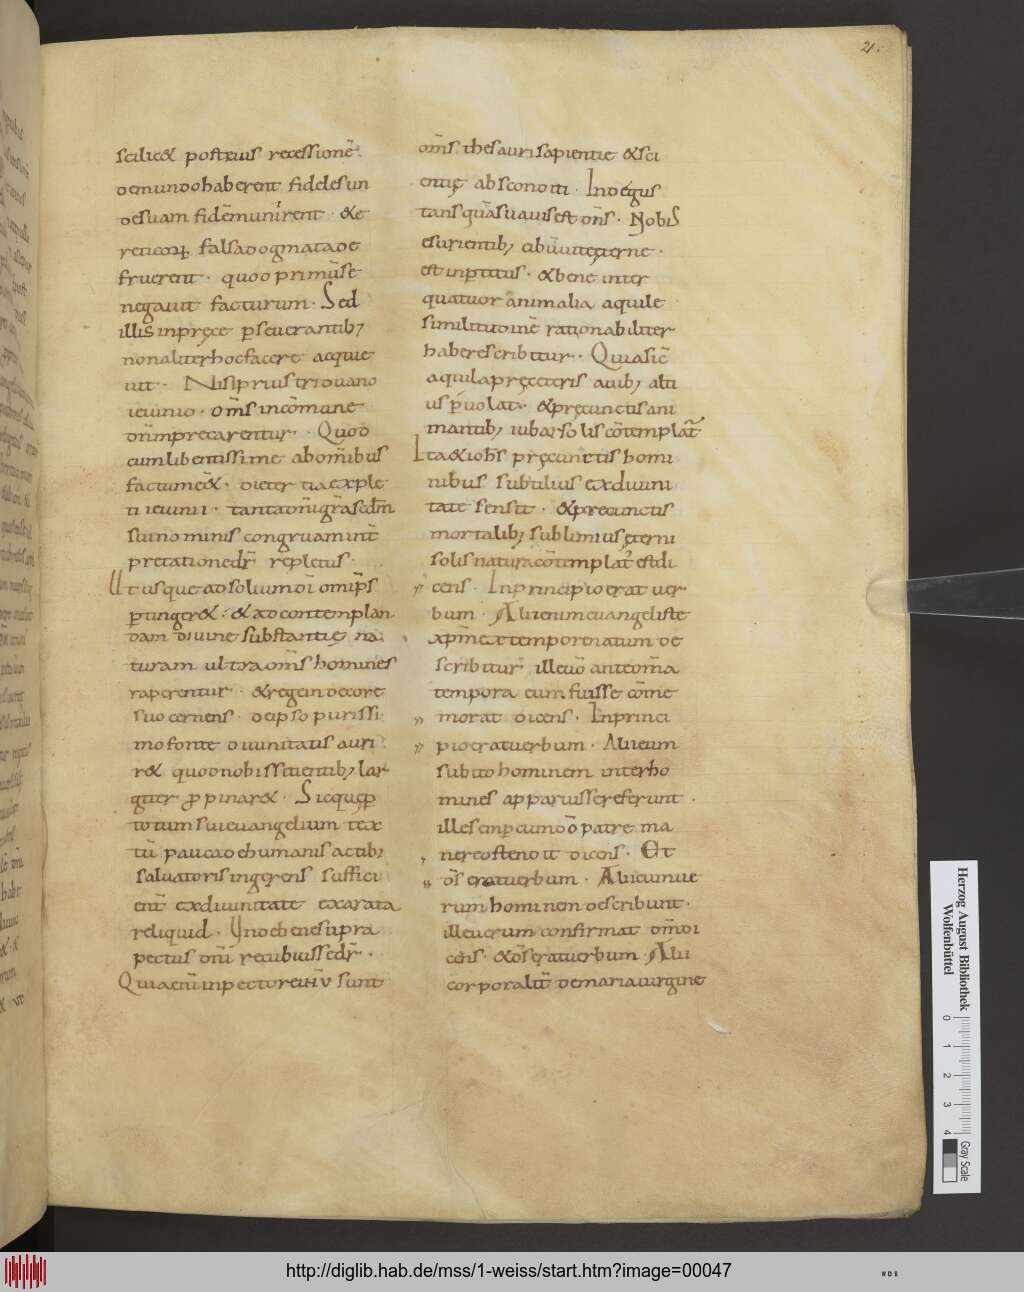 21.
scilicet post eius recessionē
de mundo haberent fideles un
de suam fidē munirent · et he
reticorum falsa dogmata de
fruerent · quod primū se
negavit facturum · Sed
illis in prece perseverantib;
non aliter hoc facere acquie
vit · Nisi prius triduano
ieiunio · om̄s in cōmune
dn̄m precarentur · Quod
cum libentissime ab om̄ibus
factum eēt · dieter tia exple
ti ieiunii · tanta dn̄i gr̄a sed̄m
sui nominis congruam int̄
pretationē dr̄ repletus ·
Ut usque ad solium dī om̄ps
pertingeret · et ad contemplan
dam divine substantię na
turam ultra om̄s homines
raperentur · et regein decore
suo cernens · de ipso purissi
mo fonte divinitatis auri
ret quod nobis sitientib; lar
giter propinaret · Sicque per
totum sui evangelium tex
tū pauca de humanis actib;
salvatoris ingerens suffici
ent̄ ex divinitate exarata
reliquid · Unde bene supra
pectus dn̄i recubuisse dr̄ ·
Quia enī in pectore iħv sunt
om̄s thesauri sapientie et sci
entię absconditi · In de gus
tans quā suavis est dn̄s · Nobis
esurientib; cibū vite ęterne ·
est inpertitus · et bene inter
quatuor animalia aquile
similitudinē rationabiliter
habere scribitur · Quia sic̄
aquila pre ceteris avib; alti
us pervolat · et pre cunctis ani
mantib; iubar solis cōtemplat̄
Ita et ioh̄s pre cunctis homi
nibus subtilius ex divini
tate sensit · et pre cunctis
mortalib; sublimius ęterni
solis natura cōtemplat̄ est di
cens · In principio erat ver
bum · Alii enim evangeliste
xpm̄ ex tempore natum de
scribitur ille vō ante om̄a
tempora eum fuisse cōme
morat dicens · In princi
pio erat verbum · Alii eum
subito hominem inter ho
mines apparuisse referunt ·
ille semper cum dō patre ma
nere ostendit dicens · Et
ds̄ erat verbum · Alii eum ve
rum hominem describunt ·
ille verum confirmat dm̄ di
cens · et ds̄ erat verbum · Alii
corporalit̄ de maria virgine
Herzog August Bibliothek
Wolfenbüttel
0 1 2 3 4
Gray Scale
http://diglib.hab.de/mss/1-weiss/start.htm?image=00047